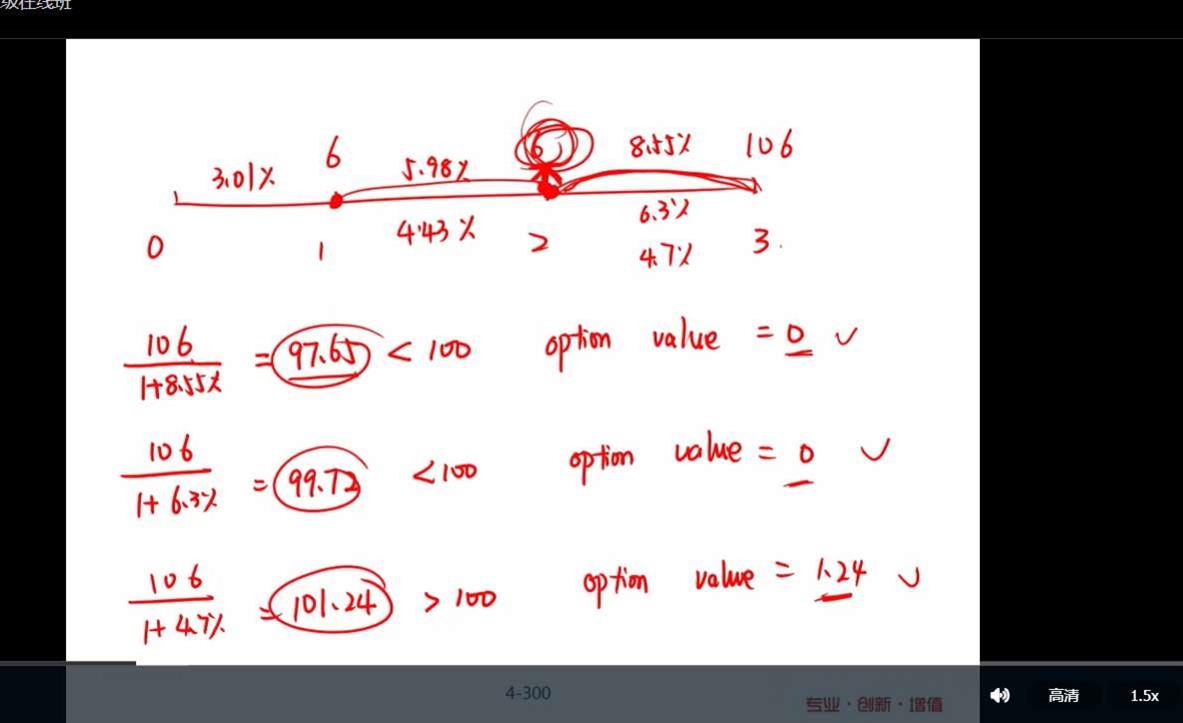 级在线班
6 106
3.01% 5.98% 8.55%
4.43% 6.3%
4.7%
0 1 2 3
106 / 1+8.55% = 97.65 < 100 option value = 0 ✓
106 / 1+6.3% = 99.72 < 100 option value = 0 ✓
106 / 1+4.7% = 101.24 > 100 option value = 1.24 ✓
4-300
专业·创新·增值
高清 1.5x